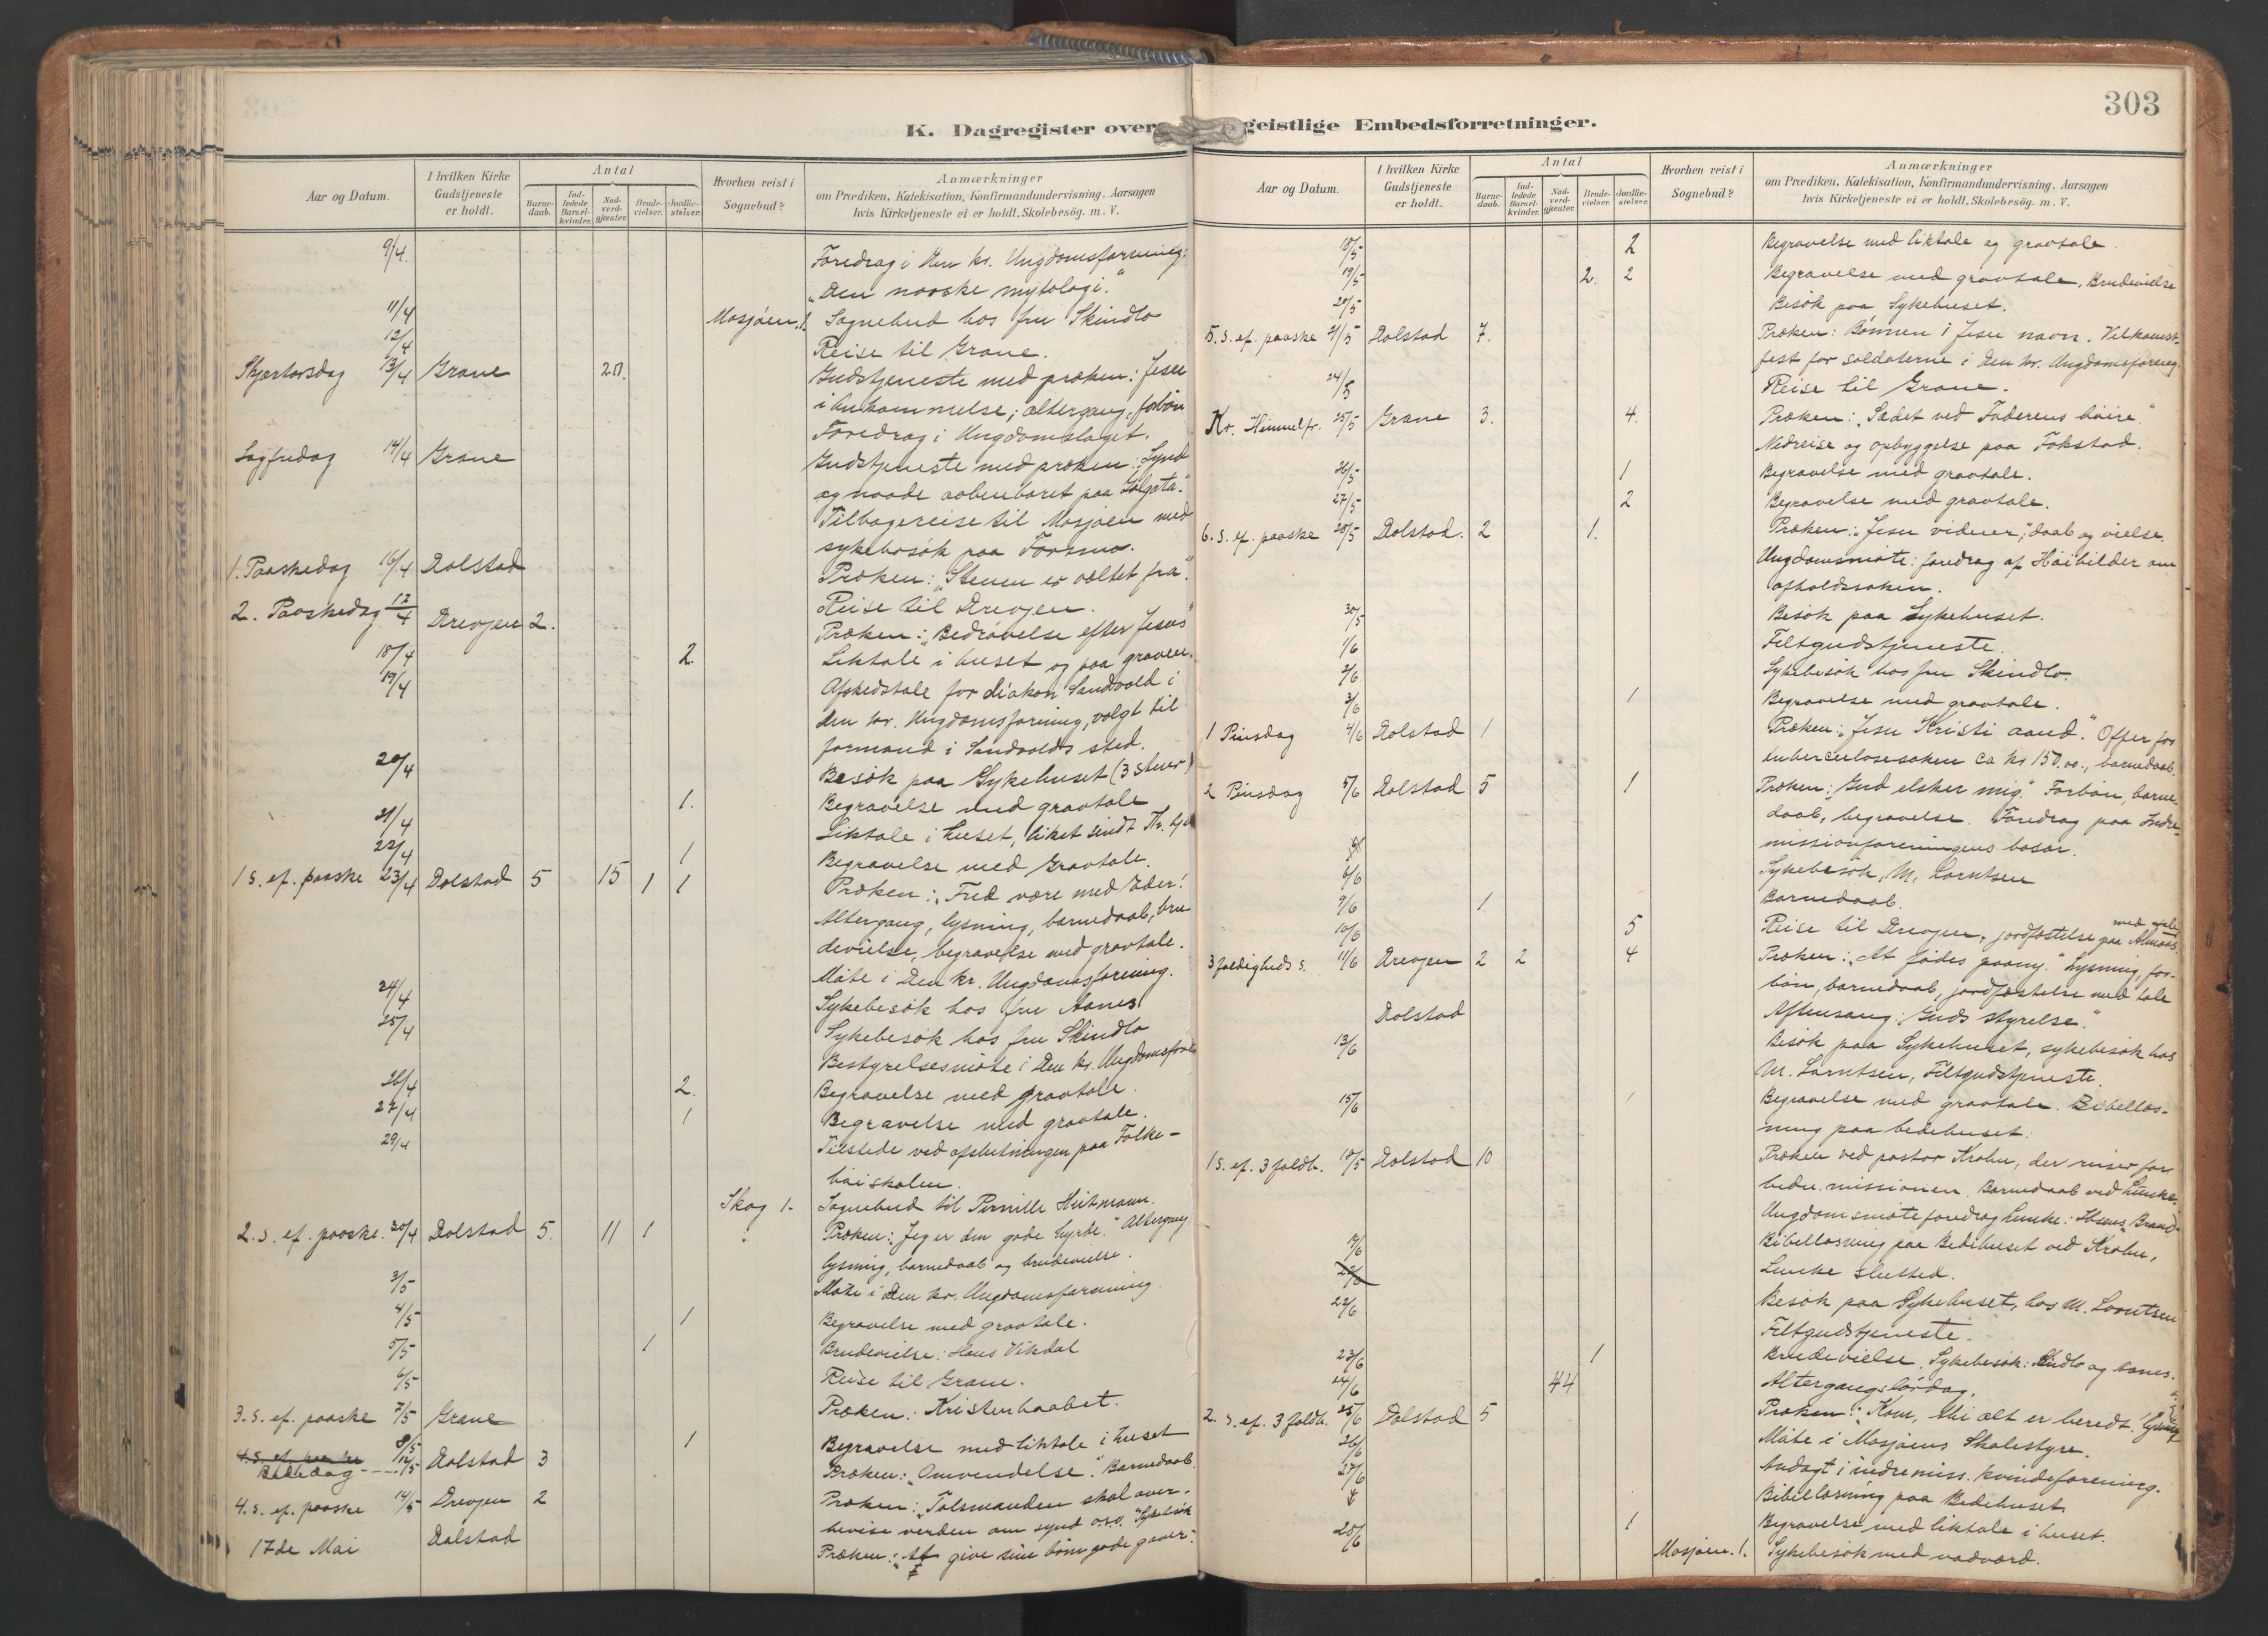 303
K. Dagregister over geistlige Embedsforretninger.
Aar og Datum.
I hvilken Kirke Gudstjeneste er holdt.
Antal
Barnedaab.
Indledede Barselkvinder.
Nadverdgjester.
Brudevielser.
Jordfæstelser.
Hvorhen reist i Sognebud?
Anmærkninger
om Prædiken, Katekisation, Konfirmandundervisning, Aarsagen
hvis Kirketjeneste ei er holdt, Skolebesøg. m. V.
9/4. Foredrag i Den kr. Ungdomsforening:
"Den norske mytologi."
11/4 Mosjøen. 1. Sognebud hos fru Skindlo
12/4 Reise til Grane.
Skjærtorsdag 13/4 Grane 20. Gudstjeneste med præken: Jesu
ihukommelse; altergang, forbøn
Foredrag i Ungdomslaget.
Langfredag 14/4 Grane Gudstjeneste med præken: "Synd
og naade aabenbaret paa Golgata."
Tilbagereise til Mosjøen med
sykebesøk paa Forsmo.
1. Paaskedag 16/4 Dolstad Præken: "Stenen er væltet fra."
2. Paaskedag 17/4 Drevjen 2. Reise til Drevjen.
Præken: "Bedrøvelse efter Jesus"
18/4 2. Liktale i huset og paa graven.
19/4 Afskedstale for diakon Sandvold i
den kr. Ungdomsforening, valgt til
formand i Sandvolds sted.
20/4 Besøk paa Sykehuset (3 stuer)
1. Begravelse med gravtale
21/4 Liktale i huset, liket sendt
22/4 1 Begravelse med Gravtale.
1 s. ef. paaske 23/4 Dolstad 5 15 1 1 Præken: "Fred være med Eder!
Altergang, lysning, barnedaab, bru
devielse, begravelse med gravtale.
Møte i Den kr. Ungdomsforening.
24/4 Sykebesøk hos fru Aanes
25/4 Sykebesøk hos fru Skindlo
Bestyrelsesmøte i Den kr. Ungdomsforen
26/4 2. Begravelse med gravtale.
27/4 1 Begravelse med gravtale.
29/4 Tilstede ved afslutningen paa Folke-
høiskolen.
Skog 1. Sognebud til Pernille
2. s. ef. paaske. 30/4 Dolstad 5. 11 1 Præken: "Jeg er den gode hyrde." Altergang
lysning, barnedaab og brudevielse.
3/5 Møte i Den kr. Ungdomsforening.
4/5 1 Begravelse med gravtale.
5/5 1 Brudevielse: Hans Vikdal
6/5 Reise til Grane.
3. s. ef. paaske 7/5 Grane Præken: Kristenhaabet.
8/5 1 Begravelse med liktale i huset
Bededag 12/5 Dolstad 3 Præken: "Omvendelse". Barnedaab.
4. s. ef. paaske 14/5 Drevjen 2 Præken: "Talsmanden skal over-
bevise verden om synd o.s.v." Sykebesøk
17de Mai Dolstad Præken: "At give sine børn gode gaver."
18/5 2 Begravelse med liktale og gravtale.
19/5 2. 2 Begravelse med gravtale, Brudevielse
20/5 Besøk paa Sykehuset.
5. s. ef. paaske 21/5 Dolstad 7. Præken: Bønnen i Jesu navn. Velkomst-
fest for soldaterne i Den kr. Ungdomsforeng.
24/5 Reise til Grane.
Kr. Himmelfr. 25/5 Grane 3. 4. Præken: "Sædet ved Faderens høire".
Nedreise og opbyggelse paa Fokstad.
26/5 1 Begravelse med gravtale.
27/5 2 Begravelse med gravtale.
6. s. ef. paaske 28/5 Dolstad. 2 1. Præken: "Jesu vidner," daab og vielse.
Ungdomsmøte: foredrag af Høibilder om
afholdssaken.
30/5 Besøk paa Sykehuset.
1/6 Feltgudstjeneste.
2/6 Sykebesøk hos fru Skindlo.
3/6 1 Begravelse med gravtale.
1 Pinsdag 4/6 Dolstad 1 Præken: "Jesu Kristi aand". Offer for
tuberculosesaken ca kr 150.00., barnedaab.
2 Pinsdag 5/6 Dolstad 5 1 Præken: "Gud elsker mig." Forbøn, barne-
daab, begravelse. Foredrag paa Indre-
missionsforeningens basar.
6/6 Sykebesøk, M. Lorntsen
9/6 1 Barnedaab.
10/6 5 Reise til Drevjen, jordfæstelse med tale paa
3foldigheds s. 11/6 Drevjen 2 2 4 Præken: "At fødes paany." Lysning, for-
bøn, barnedaab, jordfæstelse med tale
Dolstad Aftensang: "Guds styrelse."
13/6 Besøk paa Sykehuset, sykebesøk hos
M. Lorntsen, Feltgudstjeneste.
15/6 1 Begravelse med gravtale. Bibellæs-
ning paa bedehuset.
1 s. ef. 3 foldh. 18/5 Dolstad 10 Præken ved pastor Krohn, der reiser for
indre missionen. Barnedaab ved Lincke.
Ungdomsmøte foredrag Lincke: Ibsens "Brand".
19/6 Bibellæsning paa Bedehuset ved Krohn,
Lincke tilsted.
22/6 Besøk paa Sykehuset, hos M. Lorntsen
Feltgudstjeneste.
23/6 1 Brudevielse, Sykebesøk: Skindlo og Aanes.
24/6 44 Altergangslørdag.
2. s. ef. 3 foldh. 25/6 Dolstad 5 Præken: "Kom, thi alt er beredt! lysning
26/6 Møte i Mosjøens Skolestyre.
27/6 Andagt i indremiss. kvindeforening.
Bibellæsning paa Bedehuset
1 Begravelse med liktale i huset.
28/6 Mosjøen. 1. Sykebesøk med nadverd.